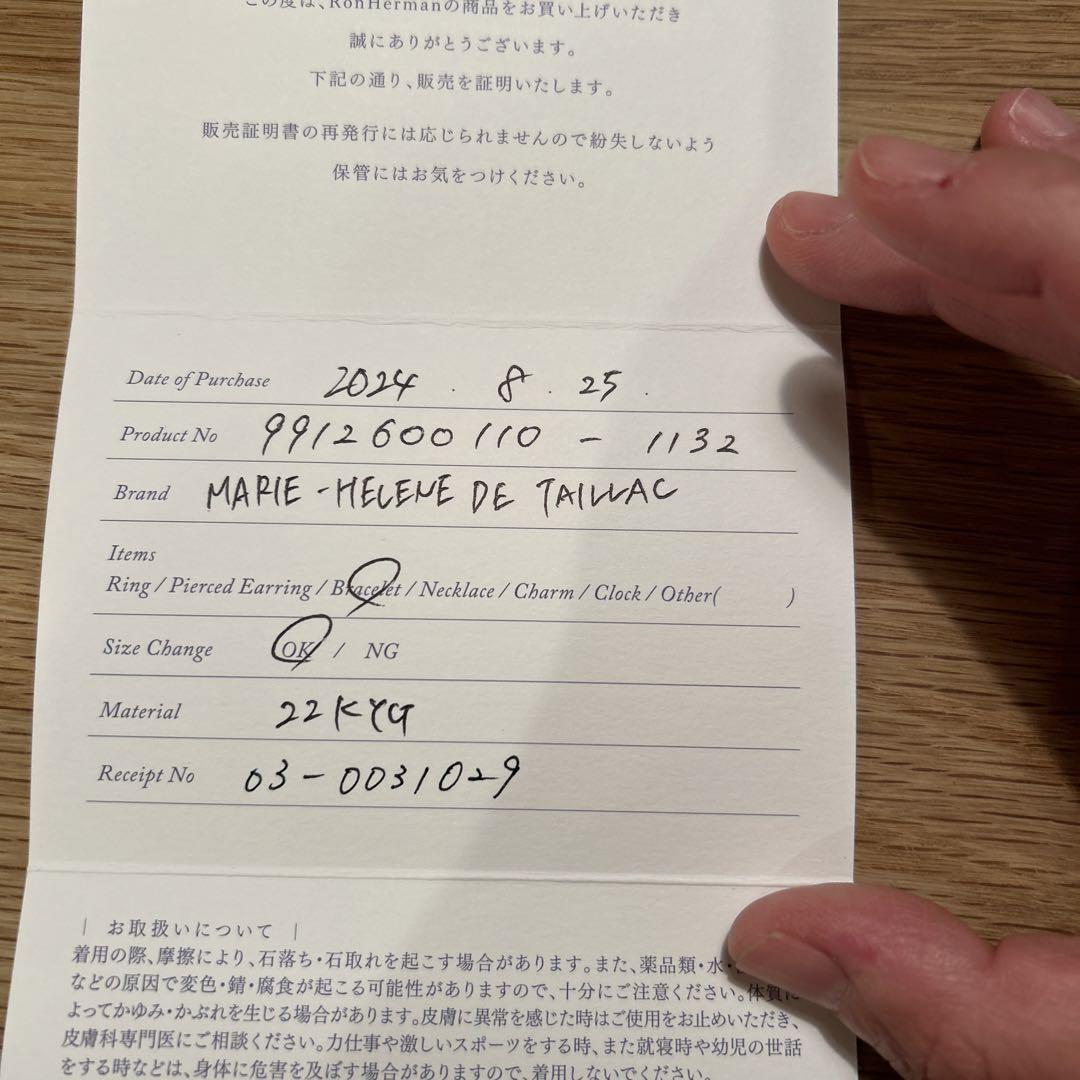 この度は、RonHermanの商品をお買い上げいただき
誠にありがとうございます。
下記の通り、販売を証明いたします。
販売証明書の再発行には応じられませんので紛失しないよう
保管にはお気をつけください。
Date of Purchase 2024 . 8 . 25 .
Product No 9912600110 - 1132
Brand MARIE-HELENE DE TAILLAC
Items
Ring / Pierced Earring / Bracelet / Necklace / Charm / Clock / Other( )
Size Change OK / NG
Material 22KYG
Receipt No 03-0031029
| お取扱いについて |
着用の際、摩擦により、石落ち・石取れを起こす場合があります。また、薬品類・水・
などの原因で変色・錆・腐食が起こる可能性がありますので、十分にご注意ください。体質に
よってかゆみ・かぶれを生じる場合があります。皮膚に異常を感じた時はご使用をお止めいただき、
皮膚科専門医にご相談ください。力仕事や激しいスポーツをする時、また就寝時や幼児の世話
をする時などは、身体に危害を及ぼす場合がありますので、着用しないでください。